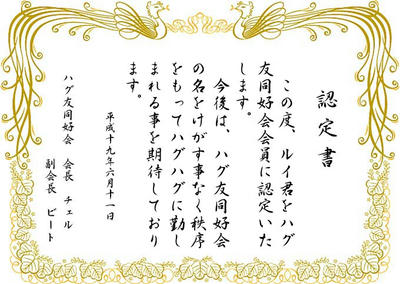 認定書
この度、ルイ君をハグ
友同好会会員に認定いた
します。
今後は、ハグ友同好会
の名をけがす事なく秩序
をもってハグハグに勤し
まれる事を期待しており
ます。
平成十九年六月十一日
ハグ友同好会 会長 チェル
副会長 ビート